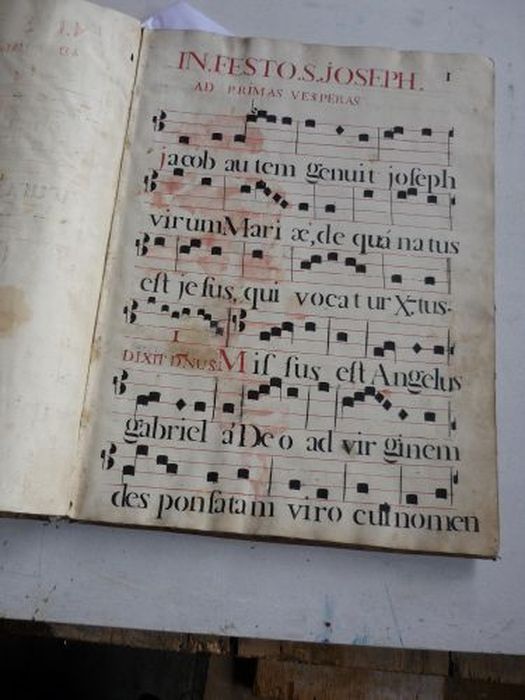 IN.FESTO.S.JOSEPH. 1
AD PRIMAS VESPERAS
jacob autem genuit joseph
virum Mariæ, de quá natus
est jesus, qui vocatur X̄tus.
1
DIXIT DNUS. Missus est Angelus
gabriel á Deo ad virginem
desponsatam viro cui nomen